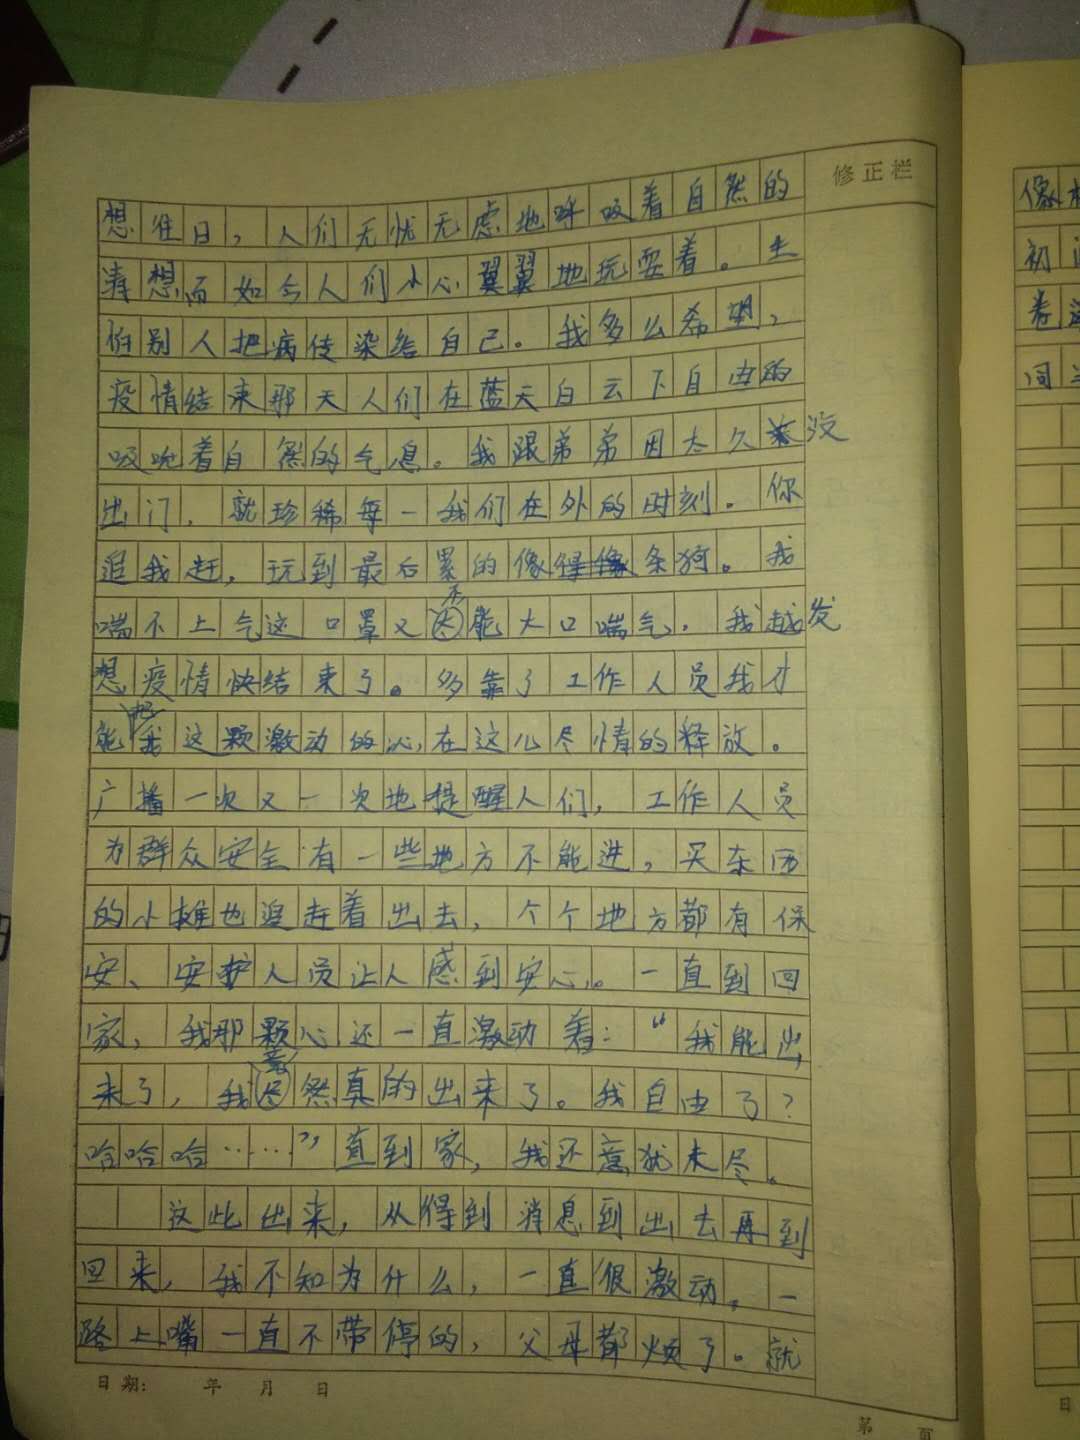 修正栏
想往日，人们无忧无虑地呼吸着自然的
清想而如今人们小心翼翼地玩耍着。生
怕别人把病传染给自己。我多么希望，
疫情结束那天人们在蓝天白云下自由的
吸吮着自然的气息。我跟弟弟因太久没
出门，就珍稀每一我们在外的时刻。你
追我赶，玩到最后累的像条狗。我
喘不上气这口罩又不能大口喘气，我越发
想疫情快结束了。多靠了工作人员我才
能把我这颗激动的心，在这儿尽情的释放。
广播一次又一次地提醒人们，工作人员
为群众安全有一些地方不能进，买东西
的小摊也追赶着出去，个个地方都有保
安、安护人员让人感到安心。一直到回
家，我那颗心还一直激动着：“我能出
来了，我竟然真的出来了。我自由了？
哈哈哈……”直到家，我还意犹未尽。
这此出来，从得到消息到出去再到
回来，我不知为什么，一直很激动。一
路上嘴一直不带停的，父母都烦了。就
日期： 年 月 日
第 页
像
初
卷
同
日